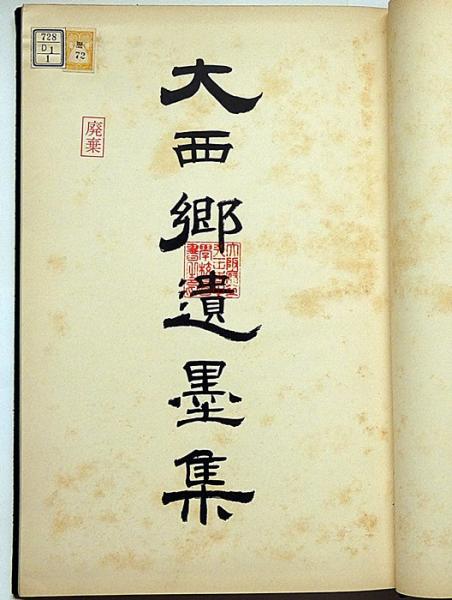 大西郷遺墨集
728
D1
1
歴
72
廃棄